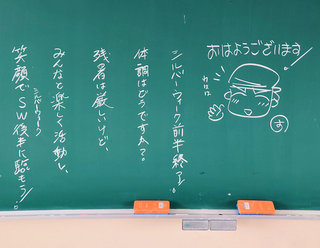 おはようございます!
わはは
す
シルバーウィーク前半終了!
体調はどうですか?
残暑は厳しいけど、
みんなと楽しく活動し、
シルバーウィーク
笑顔でSW後半に臨もう!